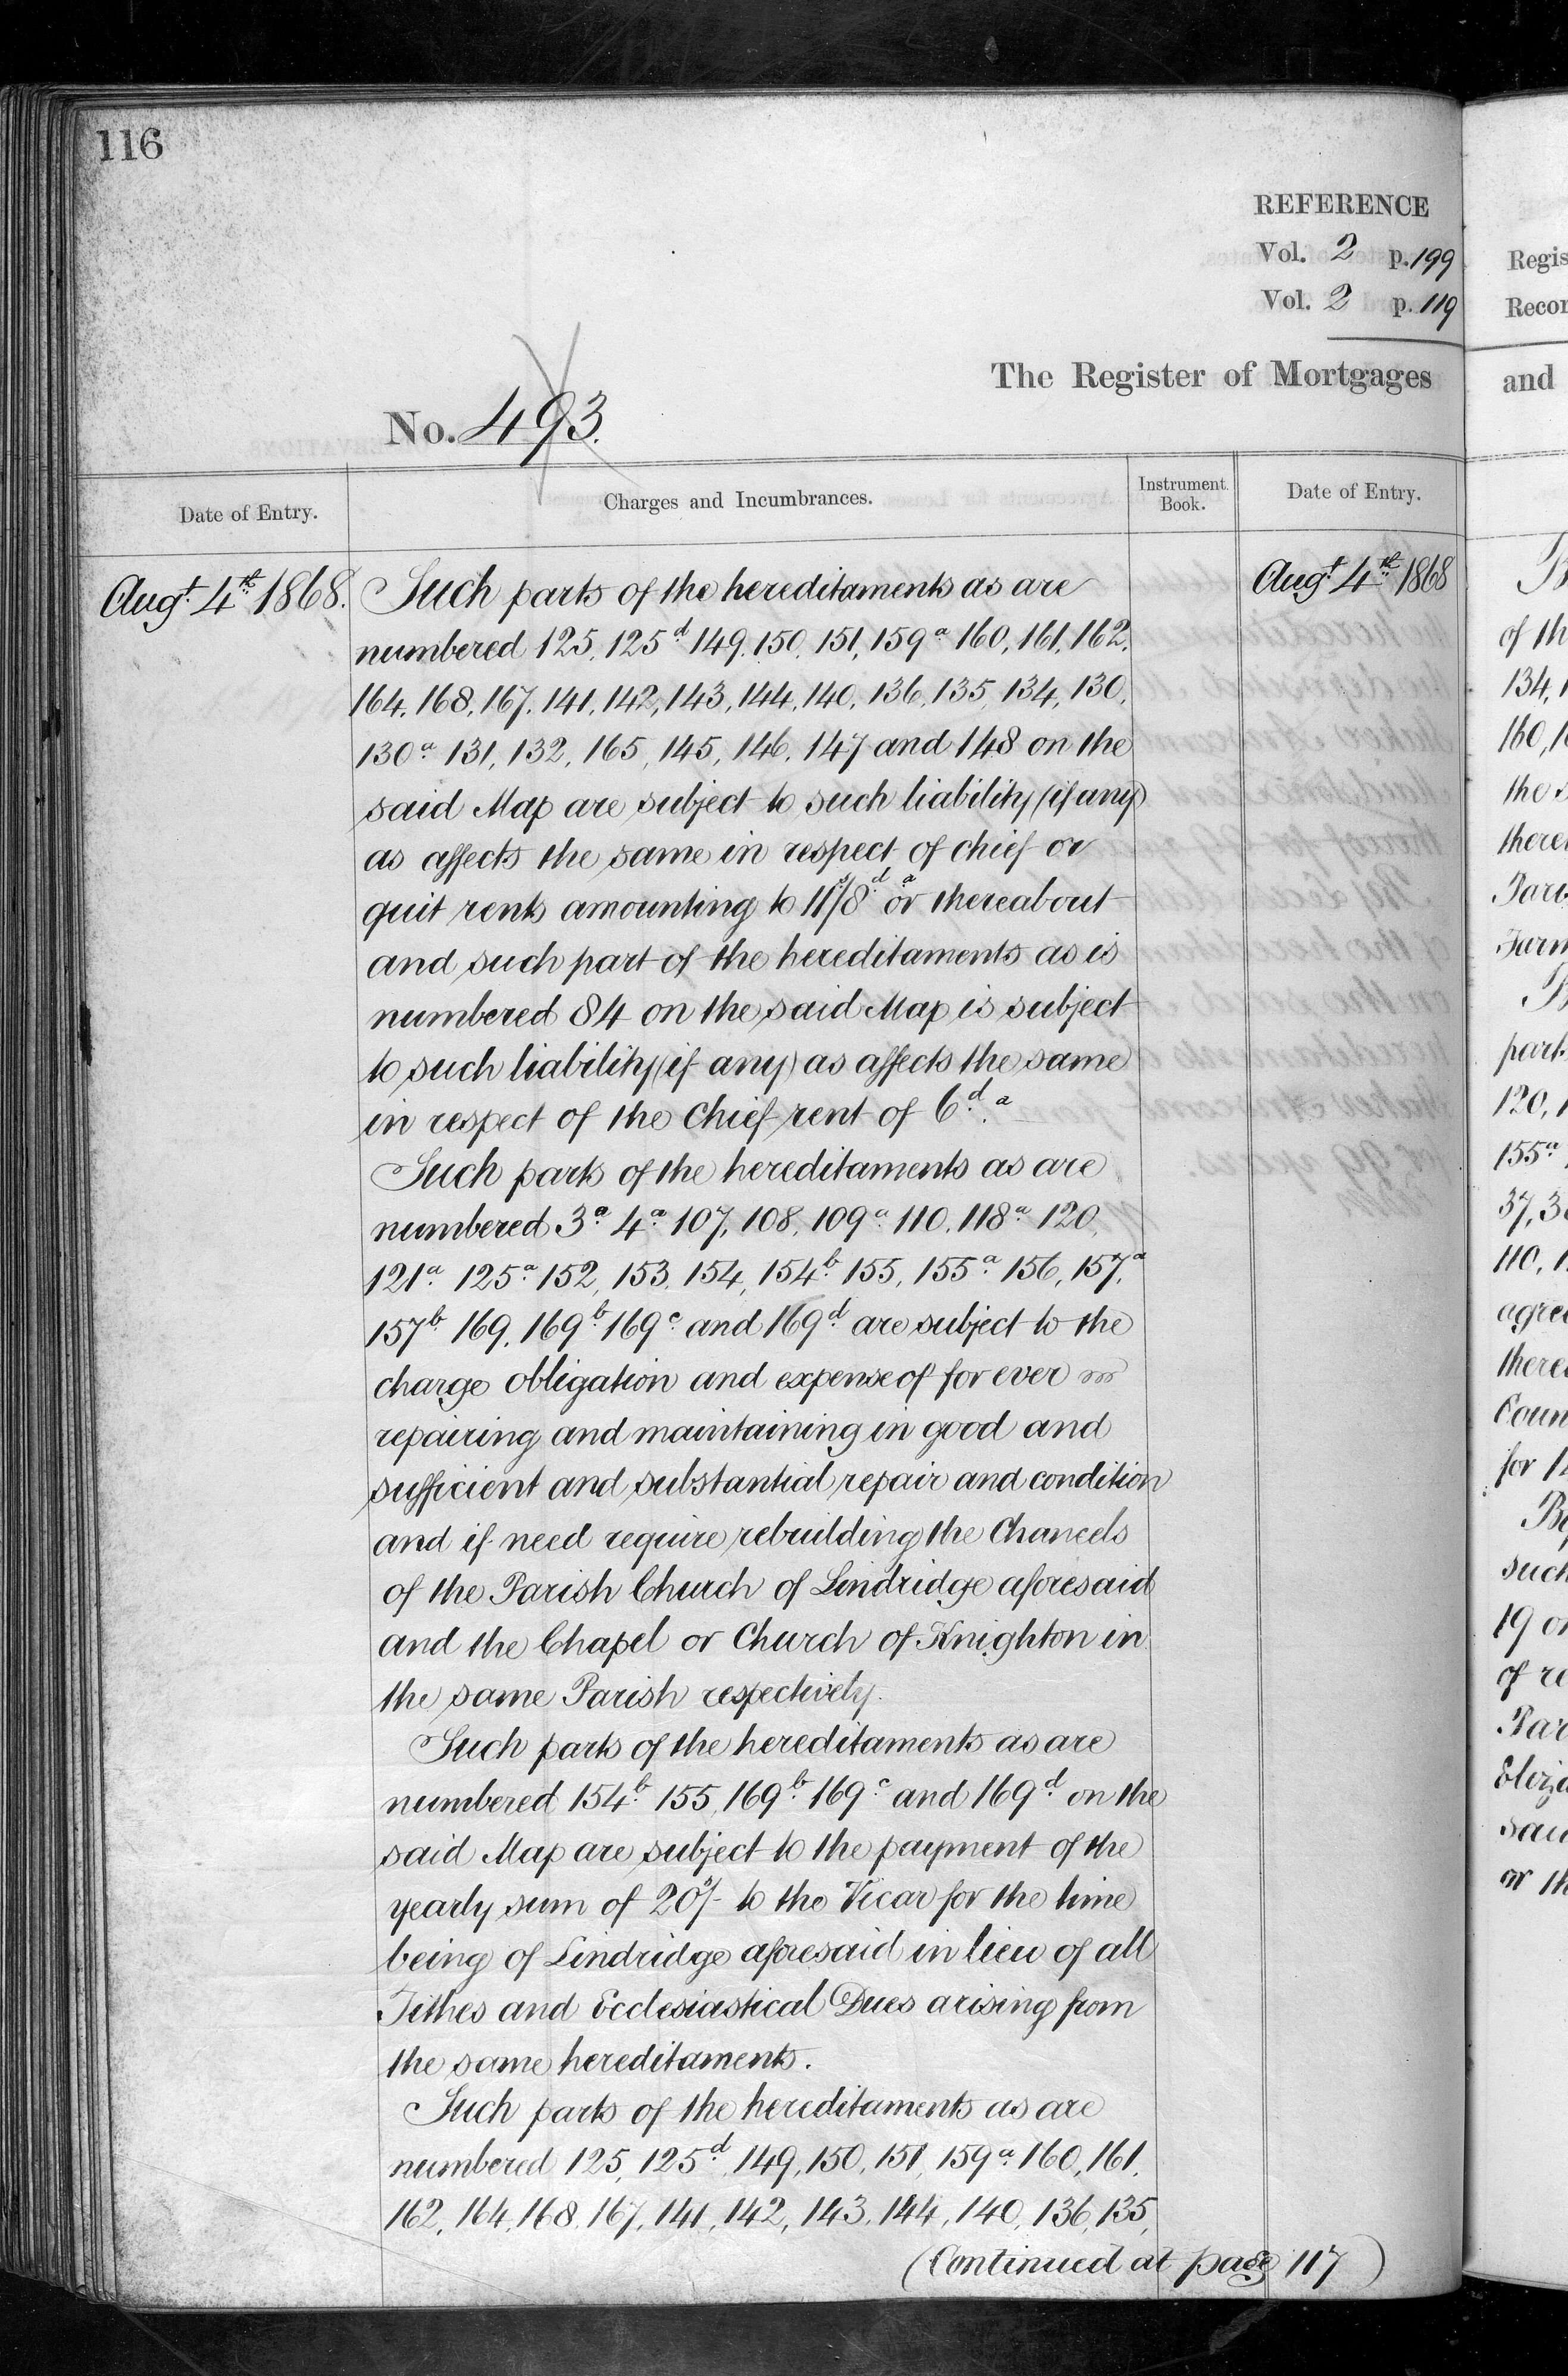 116
REFERENCE
Vol. 2 p. 199
Vol. 2 p. 119
The Register of Mortgages
No. 493.
Date of Entry.
Charges and Incumbrances.
Instrument Book.
Date of Entry.
Augt. 4th. 1868.
Such parts of the hereditaments as are
numbered 125, 125d. 149, 150, 151, 159a. 160, 161, 162,
164, 168, 167, 141, 142, 143, 144, 140, 136, 135, 134, 130,
130a. 131, 132, 165, 145, 146, 147 and 148 on the
said Map are subject to such liability (if any)
as affects the same in respect of chief or
quit rents amounting to 11s/8d. a or thereabout
and such part of the hereditaments as is
numbered 84 on the said Map is subject
to such liability (if any) as affects the same
in respect of the Chief rent of 6d. a
Such parts of the hereditaments as are
numbered 3a. 4a. 107, 108, 109a. 110, 118a. 120,
121a. 125a. 152, 153, 154, 154b. 155, 155a. 156, 157,a
157b. 169, 169b. 169c. and 169d. are subject to the
charge obligation and expense of for ever
repairing and maintaining in good and
sufficient and substantial repair and condition
and if need require rebuilding the Chancels
of the Parish Church of Lindridge aforesaid
and the Chapel or Church of Knighton in
the same Parish respectively.
Such parts of the hereditaments as are
numbered 154b. 155, 169b. 169c. and 169d. on the
said Map are subject to the payment of the
yearly sum of 20s/- to the Vicar for the time
being of Lindridge aforesaid in lieu of all
Tithes and Ecclesiastical Dues arising from
the same hereditaments.
Such parts of the hereditaments as are
numbered 125, 125d. 149, 150, 151, 159a. 160, 161,
162, 164, 168, 167, 141, 142, 143, 144, 140, 136, 135,
(Continued at page 117)
Augt. 4th. 1868
and
of th
134, 1
160, 1
the s
part
120, 1
155a.
37, 3
110, 1
for 1
such
19 o
of re
or th